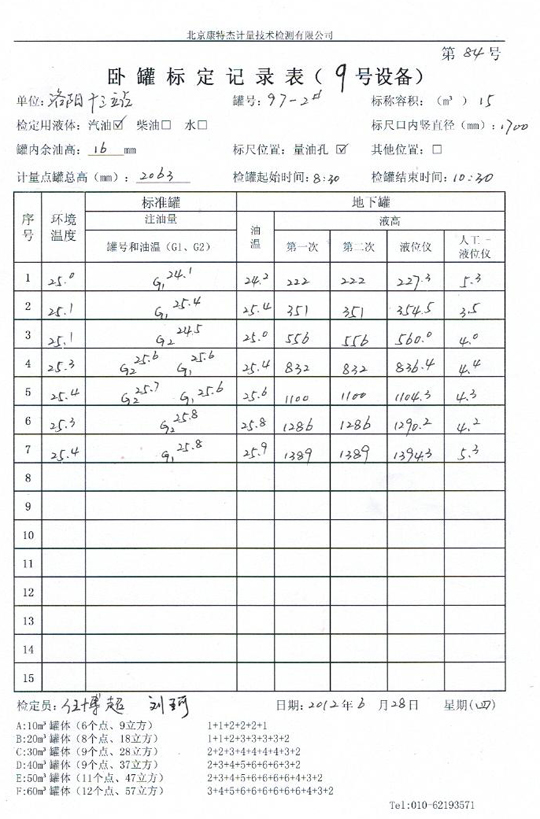 北京康特杰计量技术检测有限公司
第 84 号
卧罐标定记录表(9号设备)
单位:洛阳十三站 罐号:97-2# 标称容积:(m³)15
检定用液体:汽油☑ 柴油□ 水□ 标尺口内竖直径(mm):1700
罐内余油高:16 mm 标尺位置:量油孔 ☑ 其他位置:□
计量点罐总高(mm):2063 检罐起始时间:8:30 检罐结束时间:10:30
序号 环境温度 标准罐 地下罐
注油量 油温 液高
罐号和油温(G1、G2) 第一次 第二次 液位仪 人工-液位仪
1 25.0 G₁24.1 24.2 222 222 227.3 5.3
2 25.1 G₁25.4 25.4 351 351 354.5 3.5
3 25.1 G₂24.5 25.0 556 556 560.0 4.0
4 25.3 G₂25.6 G₁25.6 25.4 832 832 836.4 4.4
5 25.4 G₂25.7 G₁25.6 25.6 1100 1100 1104.3 4.3
6 25.3 G₂25.8 25.8 1286 1286 1290.2 4.2
7 25.4 G₁25.8 25.9 1389 1389 1394.3 5.3
8
9
10
11
12
13
14
15
检定员:任博超 刘珂 日期:2012年6月28日 星期(四)
A:10m³罐体(6个点、9立方) 1+1+2+2+2+1
B:20m³罐体(8个点、18立方) 1+1+2+3+3+3+3+2
C:30m³罐体(9个点、28立方) 2+2+3+4+4+4+4+3+2
D:40m³罐体(9个点、37立方) 2+3+4+5+6+6+6+3+2
E:50m³罐体(11个点、47立方) 2+3+4+5+6+6+6+6+4+3+2
F:60m³罐体(12个点、57立方) 3+4+5+6+6+6+6+6+6+4+3+2
Tel:010-62193571